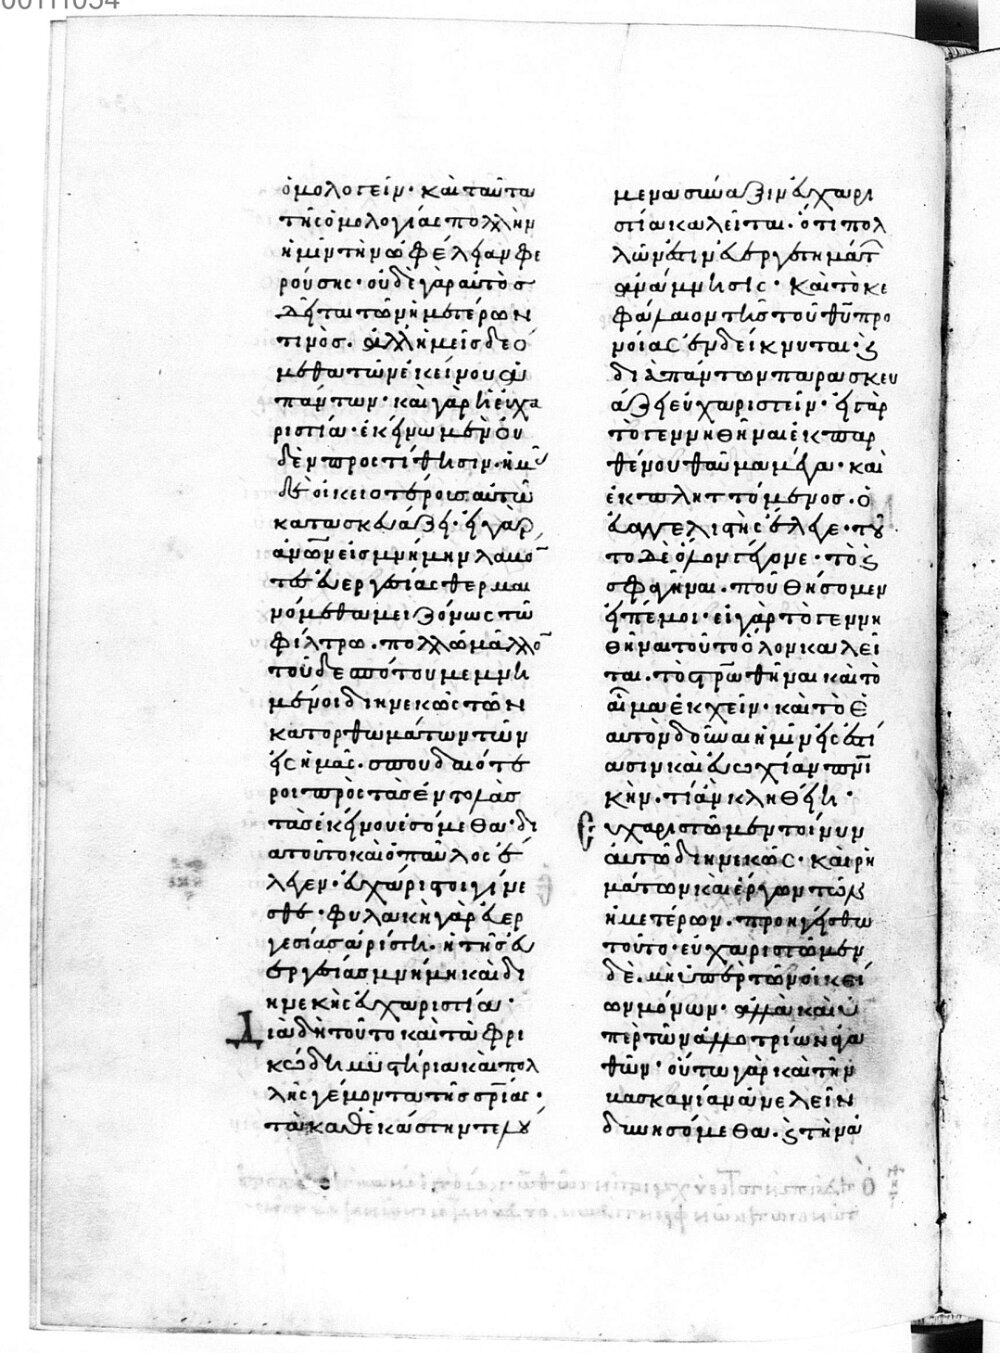 ὁμολογεῖν· καὶ ταῦτα
τῆς ὁμολογίας πολλὴν
ἡμῖν τὴν ὠφέλειαν φε
ρούσης· οὐδὲ γὰρ αὐτὸς
δεῖται τῶν ἡμετέρων
τινὸς. ἀλλ ἡμεῖς δεό
μεθα τῶν ἐκείνου ἁ
πάντων· καὶ γὰρ ἡ εὐχα
ριστία· ἐκείνω μὲν οὐ
δὲν προστίθησιν· ἡμᾶς
δὲ οἰκειοτέρους αὐτῶ
κατασκευάζει· εἰ γὰρ
ἀνων εἰς μνήμην λαβόν
τες εὐεργεσίας θερμαι
νόμεθα μειζόνως τῶ
φίλτρω. πολλῶ μᾶλλον
τοῦ δεσπότου μεμνη
μένοι διηνεκῶς τῶν
κατορθωμάτων τῶν
εἰς ἡμᾶς. σπουδαιότε
ροι πρὸς τὰς ἐντολὰς
τὰς ἐκείνου ἐσόμεθα· δι
α τοῦτο καὶ ὁ παῦλος ἔ
λεγεν· εὐχάριστοι γίνε
σθε· φυλακὴ γὰρ εὐερ
γεσίας ἀρίστη. ἡ τῆς εὐ
εργεσίας μνήμη καὶ δι
ηνεκὴς εὐχαριστία·
Διὰ δὴ τοῦτο καὶ τὰ φρι
κώδη μυστήρια καὶ πολ
λῆς γέμοντα τῆς σρίας·
τὰ καθ ἑκάστην τελού
μενα σύναξιν εὐχαρι
στία καλεῖται. ὅτι πολ
λῶν ἐστιν εὐεργετημάτ
ἀνάμνησις· καὶ τὸ κε
φάλαιον τῆς τοῦ θυ προ
νοίας ἐνδείκνυται· καὶ
διὰ πάντων παρασκευ
άζει εὐχαριστεῖν· εἰ γὰρ
τὸ γεννηθῆναι ἐκ παρ
θένου θαῦμα μέγα· καὶ
ἐκπληττόμενος. ὁ
εὐαγγελιστὴς ἔλεγε· τοῦ
το δὲ ὅλον γέγονε· τὸ καὶ
σφαγῆναι. ποῦ θήσομεν
εἰπέ μοι· εἰ γὰρ τὸ γεννη
θῆναι τοῦτο ὅλον καλεῖ
ται. τὸ στρωθῆναι καὶ τὸ
αἷμα ἐκχεῖν· καὶ τὸ ἑ
αυτὸν δοῦναι ἡμῖν εἰς ἑστί
ασιν καὶ εὐωχίαν πνι
κὴν. τί ἂν κληθείη·
Εὐχαριστῶμεν τοίνυν
αὐτῶ διηνεκῶς· καὶ ρη
μάτων καὶ ἔργων τῶν
ἡμετέρων. προηγείσθω
τοῦτο· εὐχαριστῶμεν
δὲ. μὴ ὑπὲρ τῶν οἰκεί
ων μόνων· ἀλλὰ καὶ ὑ
πὲρ τῶν ἀλλοτρίων ἀγα
θῶν· οὕτω γὰρ καὶ τὴν
βασκανίαν ἀνελεῖν
δυνησόμεθα. καὶ τὴν ἀ